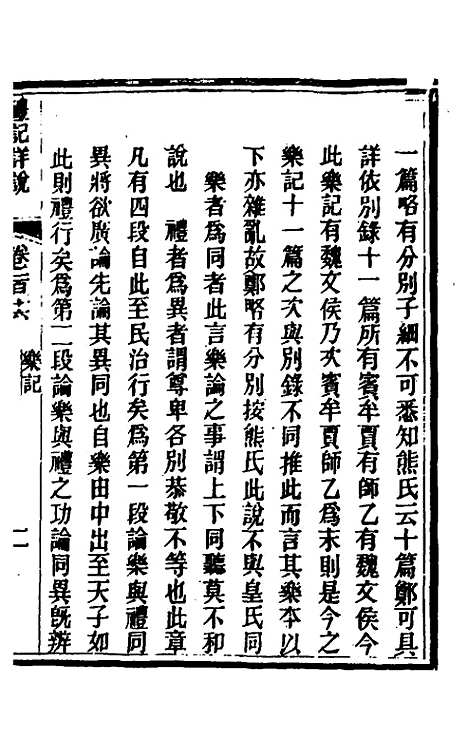 一篇略有分別子細不可悉知熊氏云十篇鄭可具
詳依別錄十一篇所有賓牟賈有師乙有魏文侯今
此樂記有魏文侯乃次賓牟賈師乙爲末則是今之
樂記十一篇之次與別錄不同推此而言其樂本以
下亦雜亂故鄭略有分別按熊氏此說不與皇氏同
樂者爲同者此言樂論之事謂上下同聽莫不和
說也　禮者爲異者謂尊卑各別恭敬不等也此章
凡有四段自此至民治行矣爲第一段論樂與禮同
異將欲廣論先論其異同也自樂由中出至天子如
此則禮行矣爲第二段論樂與禮之功論同異旣辨
禮記詳說
卷一百六
樂記
二